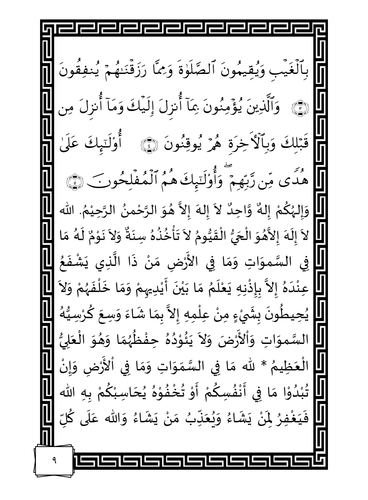 بِٱلْغَيْبِ وَيُقِيمُونَ ٱلصَّلَوٰةَ وَمِمَّا رَزَقْنَـٰهُمْ يُنفِقُونَ
﴿٣﴾ وَٱلَّذِينَ يُؤْمِنُونَ بِمَآ أُنزِلَ إِلَيْكَ وَمَآ أُنزِلَ مِن
قَبْلِكَ وَبِٱلْأَخِرَةِ هُمْ يُوقِنُونَ ﴿٤﴾ أُو۟لَـٰٓئِكَ عَلَىٰ
هُدًى مِّن رَّبِّهِمْ ۖ وَأُو۟لَـٰٓئِكَ هُمُ ٱلْمُفْلِحُونَ ﴿٥﴾
وَإِلهُكُمْ إِلهٌ وَّاحِدٌ لاَ إِلهَ إِلاَّ هُوَ الرَّحْمنُ الرَّحِيْمُ. الله
لاَ إِلَهَ إِلاَّهُوَ الْحَيُّ الْقَيُّومُ لاَ تَأْخُذُهُ سِنَةٌ وَلاَ نَوْمٌ لَهُ مَا
فِي السَّموَاتِ وَمَا فِي الأَرْضِ مَنْ ذَا الَّذِي يَشْفَعُ
عِنْدَهُ إِلاَّ بِإِذْنِهِ يَعْلَمُ مَا بَيْنَ أَيْدِيهِمْ وَمَا خَلْفَهُمْ وَلاَ
يُحِيطُونَ بِشَيْءٍ مِنْ عِلْمِهِ إِلاَّ بِمَا شَاءَ وَسِعَ كُرْسِيُّهُ
السَّموَاتِ وَاْلأَرْضَ وَلاَ يَئُوْدُهُ حِفْظُهُمَا وَهُوَ الْعَلِيُّ
الْعَظِيمُ * لله مَا فِي السَّمَوَاتِ وَمَا فِي اْلأَرْضِ وَإِنْ
تُبْدُوْا مَا فِي أَنْفُسِكُمْ أَوْ تُخْفُوْهُ يُحَاسِبْكُمْ بِهِ الله
فَيَغْفِرُ لِمَنْ يَشَاءُ وَيُعَذِّبُ مَنْ يَشَاءُ وَالله عَلَى كُلِّ
٩